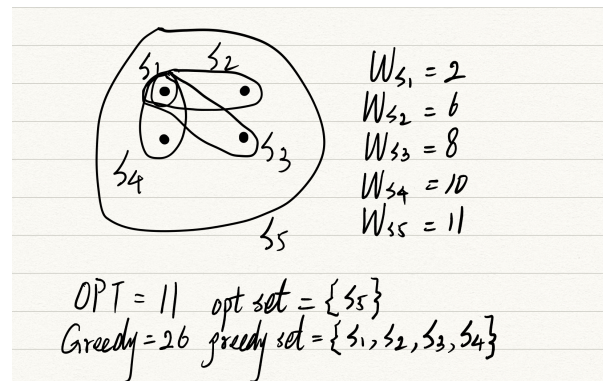 S1 S2
S3
S4
S5
W_S1 = 2
W_S2 = 6
W_S3 = 8
W_S4 = 10
W_S5 = 11
OPT = 11 opt set = {S5}
Greedy = 26 greedy set = {S1, S2, S3, S4}